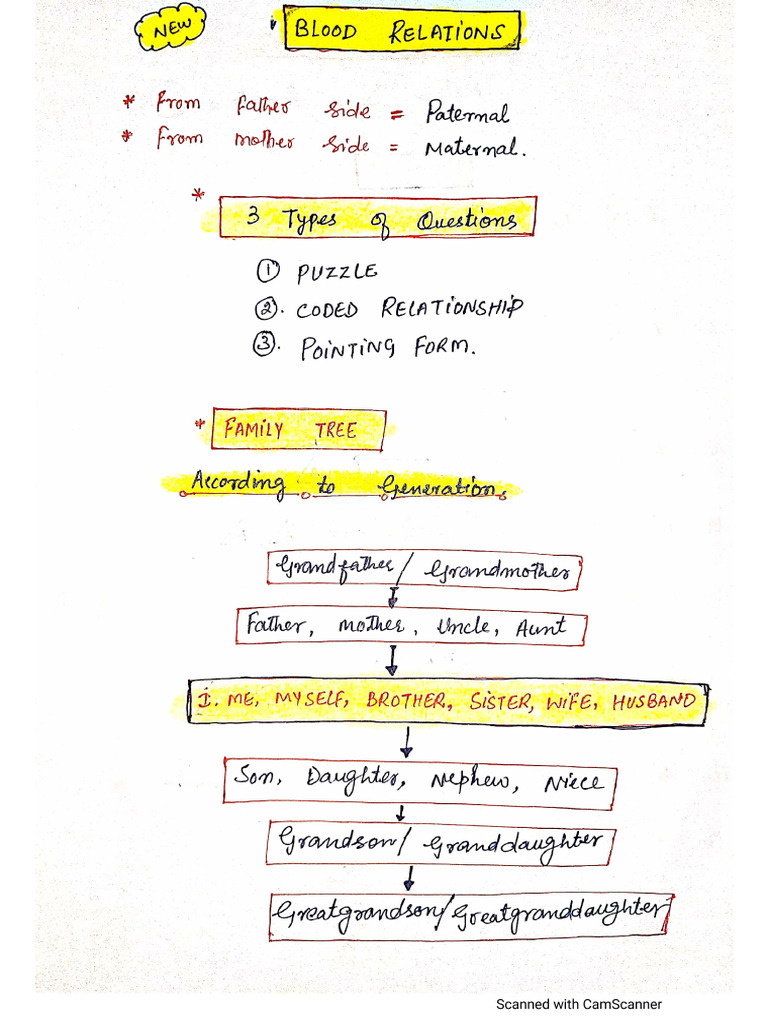 NEW
BLOOD RELATIONS
* From father side = Paternal
* From mother side = Maternal.
*
3 Types of Questions
① PUZZLE
②. CODED RELATIONSHIP
③. POINTING FORM.
* FAMILY TREE
According to Generation.
Grandfather/ Grandmother
Father, mother, Uncle, Aunt
I. ME, MYSELF, BROTHER, SISTER, WIFE, HUSBAND
Son, Daughter, Nephew, Niece
Grandson/ Granddaughter
Greatgrandson/Greatgranddaughter
Scanned with CamScanner